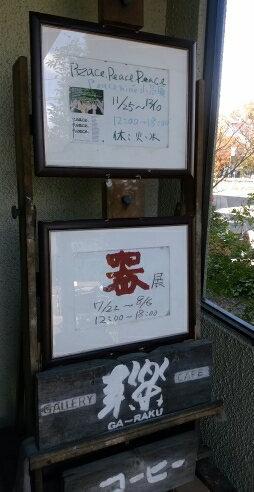 Peace Peace Peace
11/25〜12/10
12:00〜18:00
休：火・水
器展
7/22〜8/6
12:00〜18:00
GALLERY
CAFE
GA-RAKU
コーヒー